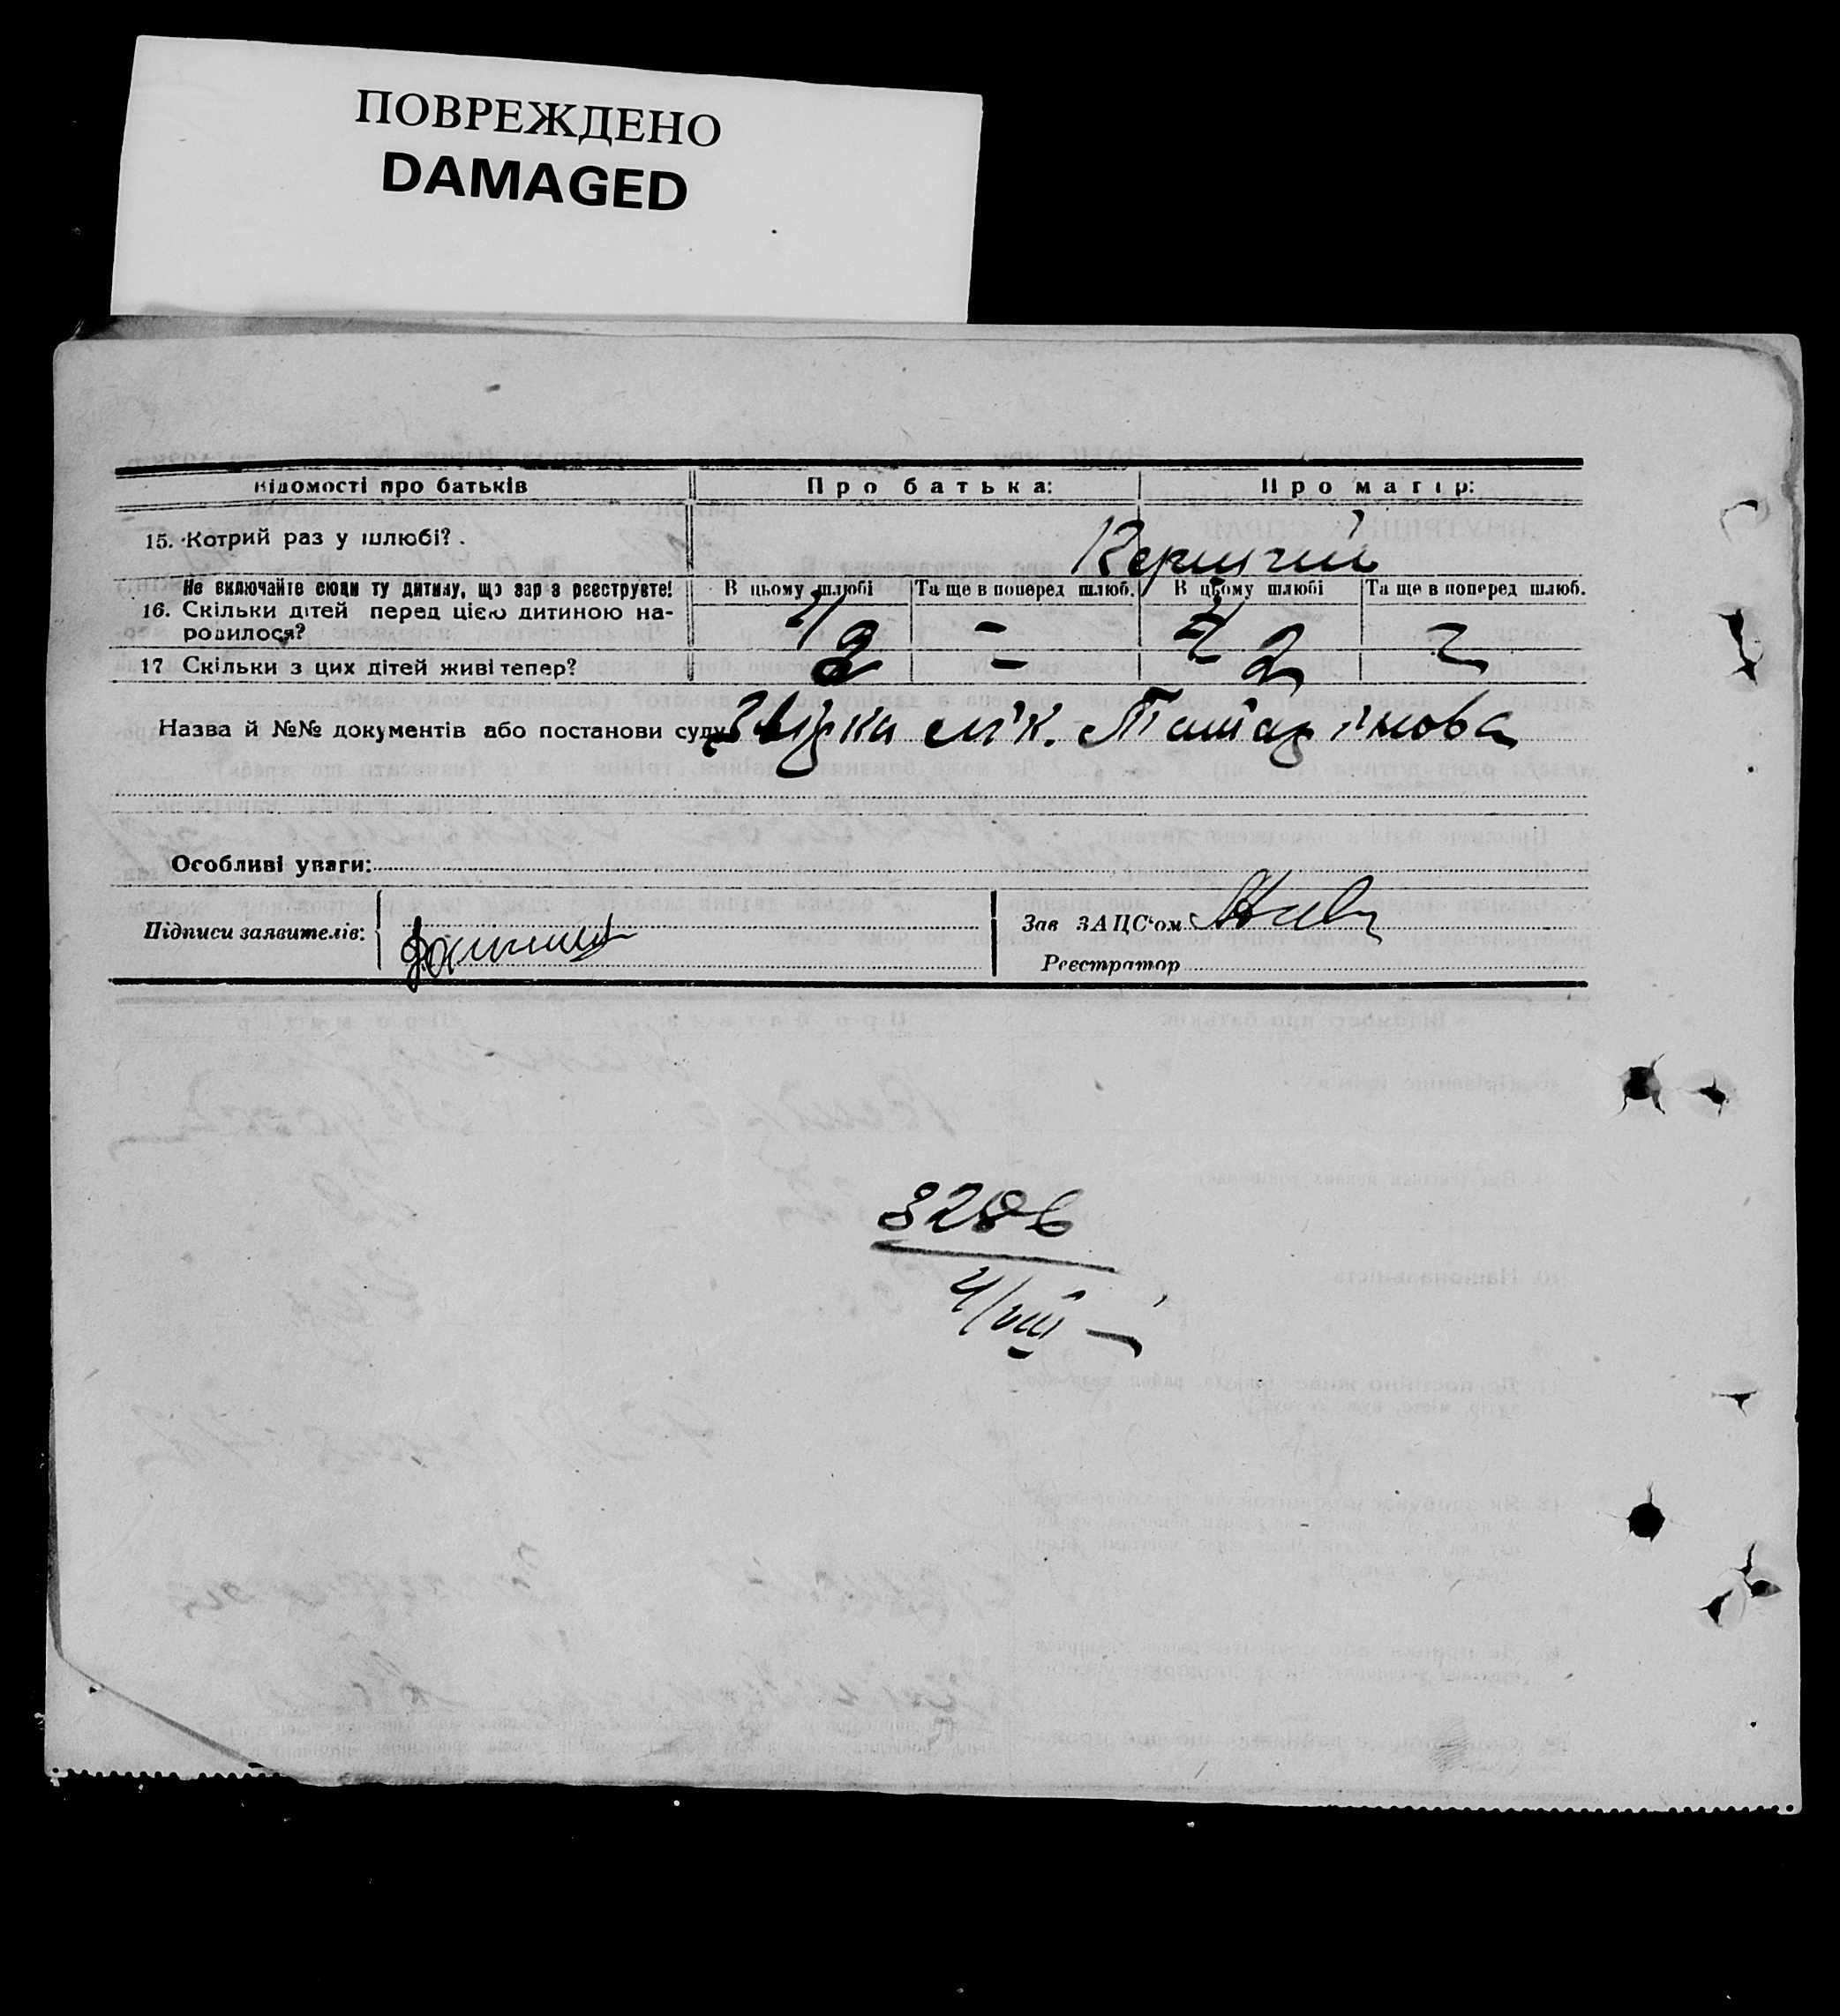 ПОВРЕЖДЕНО
DAMAGED
Відомості про батьків
Про батька:
Про матір:
15. Котрий раз у шлюбі?
Не включайте сюди ту дитину, що зар з реєструєте!
В цьому шлюбі
Та ще в поперед шлюб.
В цьому шлюбі
Та ще в поперед шлюб.
16. Скільки дітей перед цією дитиною на-
родилося?
2 – 2 –
17 Скільки з цих дітей живі тепер?
Назва й №№ документів або постанови суду
Особливі уваги:
Підписи заявителів:
Зав ЗАЦС'ом
Реєстратор
3286
4/VIII –